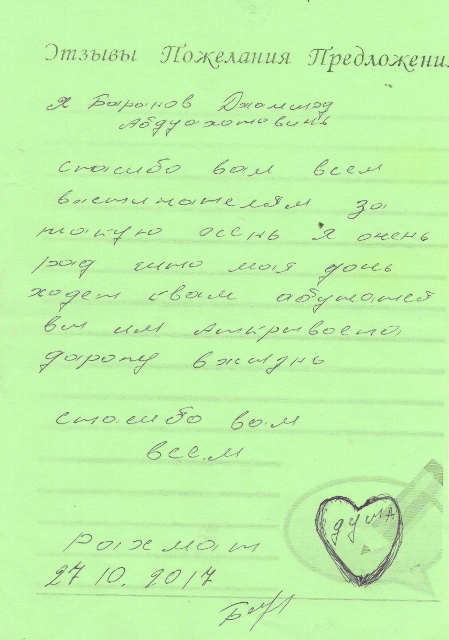 Отзывы Пожелания Предложения
Я Баранов Джамшэд
Абдуахатовичь
спасибо вам всем
васпитателям за
такую осень я очень
рад что моя дочь
ходет квам абучатся
вы им аткриваете
дарогу вжизнь
спасибо вам
всем
рахмат
27 10. 2017